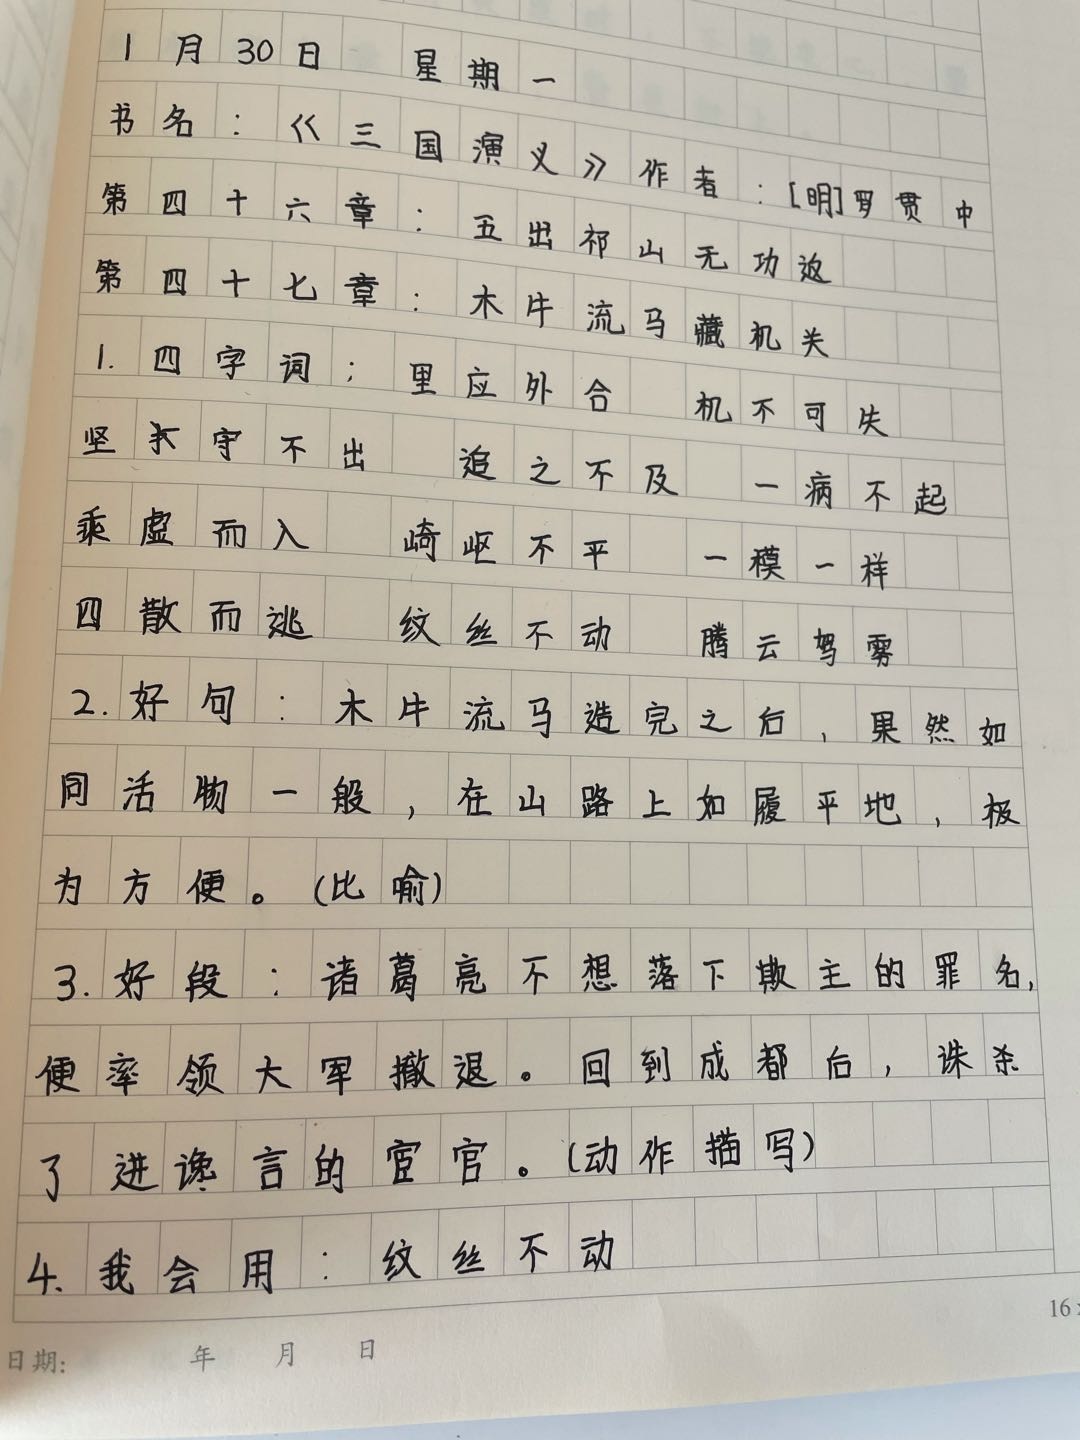 1月30日 星期一
书名：《三国演义》作者：[明]罗贯中
第四十六章：五出祁山无功返
第四十七章：木牛流马藏机关
1.四字词：里应外合 机不可失
坚守不出 追之不及 一病不起
乘虚而入 崎岖不平 一模一样
四散而逃 纹丝不动 腾云驾雾
2.好句：木牛流马造完之后，果然如
同活物一般，在山路上如履平地，极
为方便。(比喻)
3.好段：诸葛亮不想落下欺主的罪名，
便率领大军撤退。回到成都后，诛杀
了进谗言的宦官。(动作描写)
4.我会用：纹丝不动
16×
日期： 年 月 日